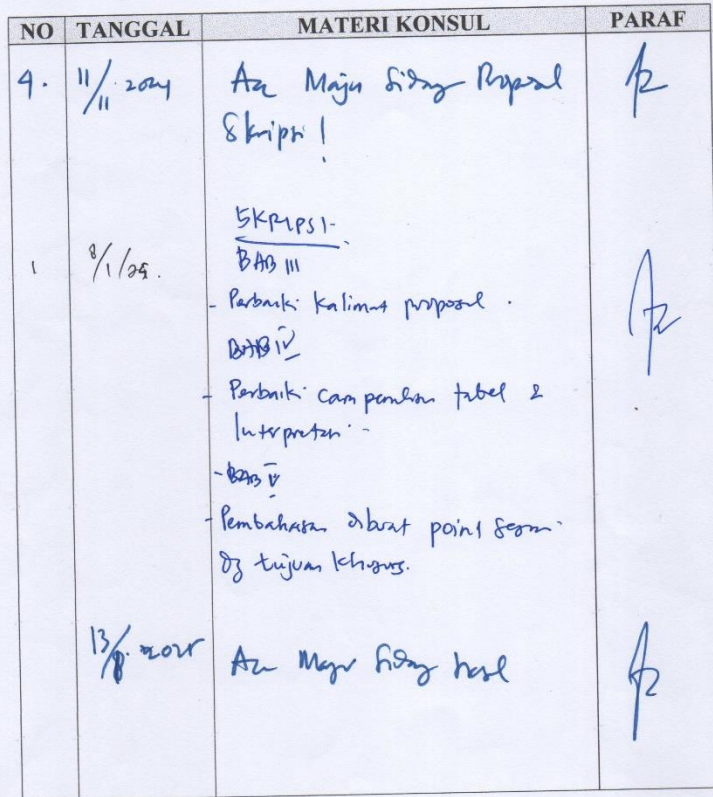 NO TANGGAL MATERI KONSUL PARAF
4. 11/11 2024 Acc Maju Sidang Proposal
Skripsi!
SKRIPSI
1 8/1/25. BAB III
- Perbaiki kalimat proposal.
BAB IV
- Perbaiki cara penulisan tabel &
Interpretasi
- BAB V
- Pembahasan dibuat point sesuai
dg tujuan khusus.
13/ 2025 Acc Maju Sidang hasil